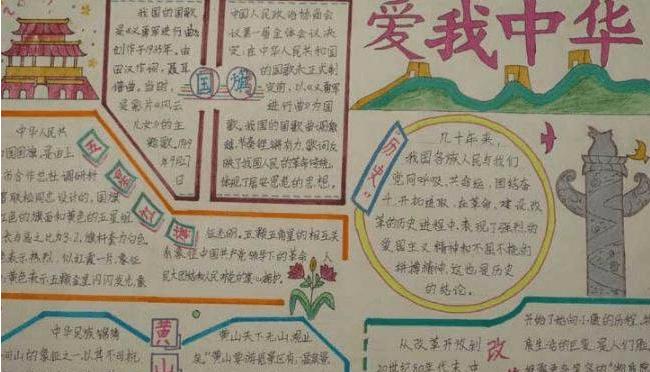 爱我中华
我国的国歌
是《义勇军进行曲》
创作于1935年。由
田汉作词，聂耳
谱曲。当时，
是影片《风云
儿女》的主
题歌。1949
年9月27
日
国旗
中国人民政治协商会
议第一届全体会议决
定，在中华人民共和国
的国歌未正式制
定前，以《义勇军
进行曲》为国
歌。我国的国歌曲调激
有力，歌词反
映了我国人民的革命传统，
体现了居安思危的思想。
五星红旗
中华人民共
国国旗，是由上
市合作总社调研科
联松同志设计的，国旗
红色的旗面和黄色的五星组
长与高之比为3:2，旗杆套为白色
色表示热烈，似红霞一片，象征
黄色表示五颗金星闪闪发光，象
征光明。五颗五角星的相互关
系象征中国共产党领导下的革命人
民大团结和人民对党的衷心拥护。
历史
九十年来，
我国各族人民与我们
党同呼吸、共命运，团结奋
斗、开拓进取，在革命、建设、改
革的历史进程中，表现了强烈的
爱国主义精神和不屈不挠的
拼搏精神，这也是历史
的结论。
黄山
中华民族锦绣
河山的象征之一，以其不可抗
黄山天下无山，观止
矣"黄山集
改
从改革开放到
20世纪80年代末，中
开始了她向小康的历程，
展生活的巨变，是人们